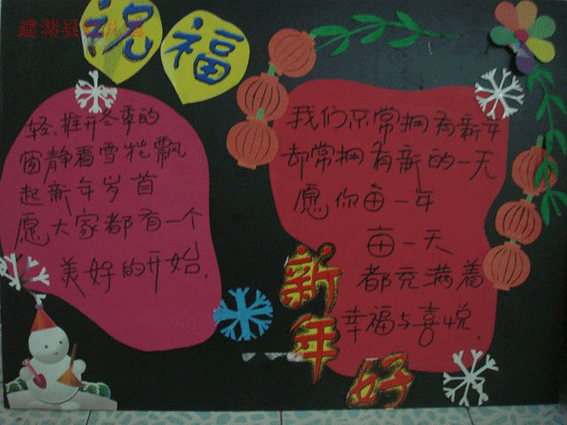 建湖县
祝福
轻、推开冬季的
窗静看雪花飘
起新年岁首
愿大家都有一个
美好的开始.
我们不常拥有新年
却常拥有新的一天
愿你每一年
每一天
都充满着
幸福与喜悦.
新年好